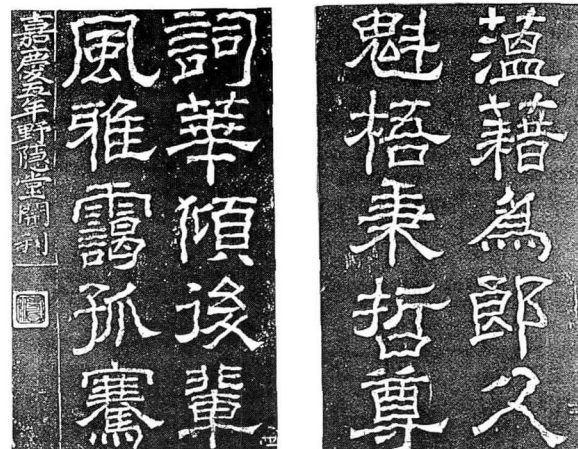 薀藉為郎久
魁梧秉哲尊
三
詞華傾後輩
風雅靄孤騫
四
嘉慶五年野隐堂開刊